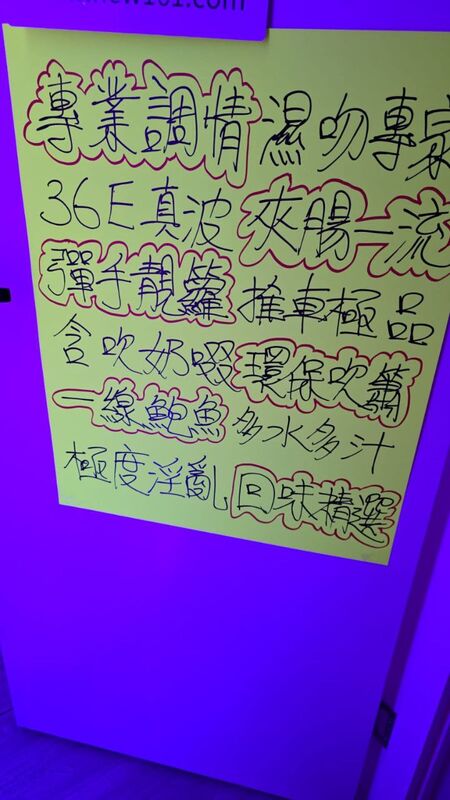 new101.com
專業調情 濕吻專家
36E真波 夾腸一流
彈手靚籮 推車極品
含吹奶啜 環保吹簫
一線鮑魚 多水多汁
極度淫亂 回味精選